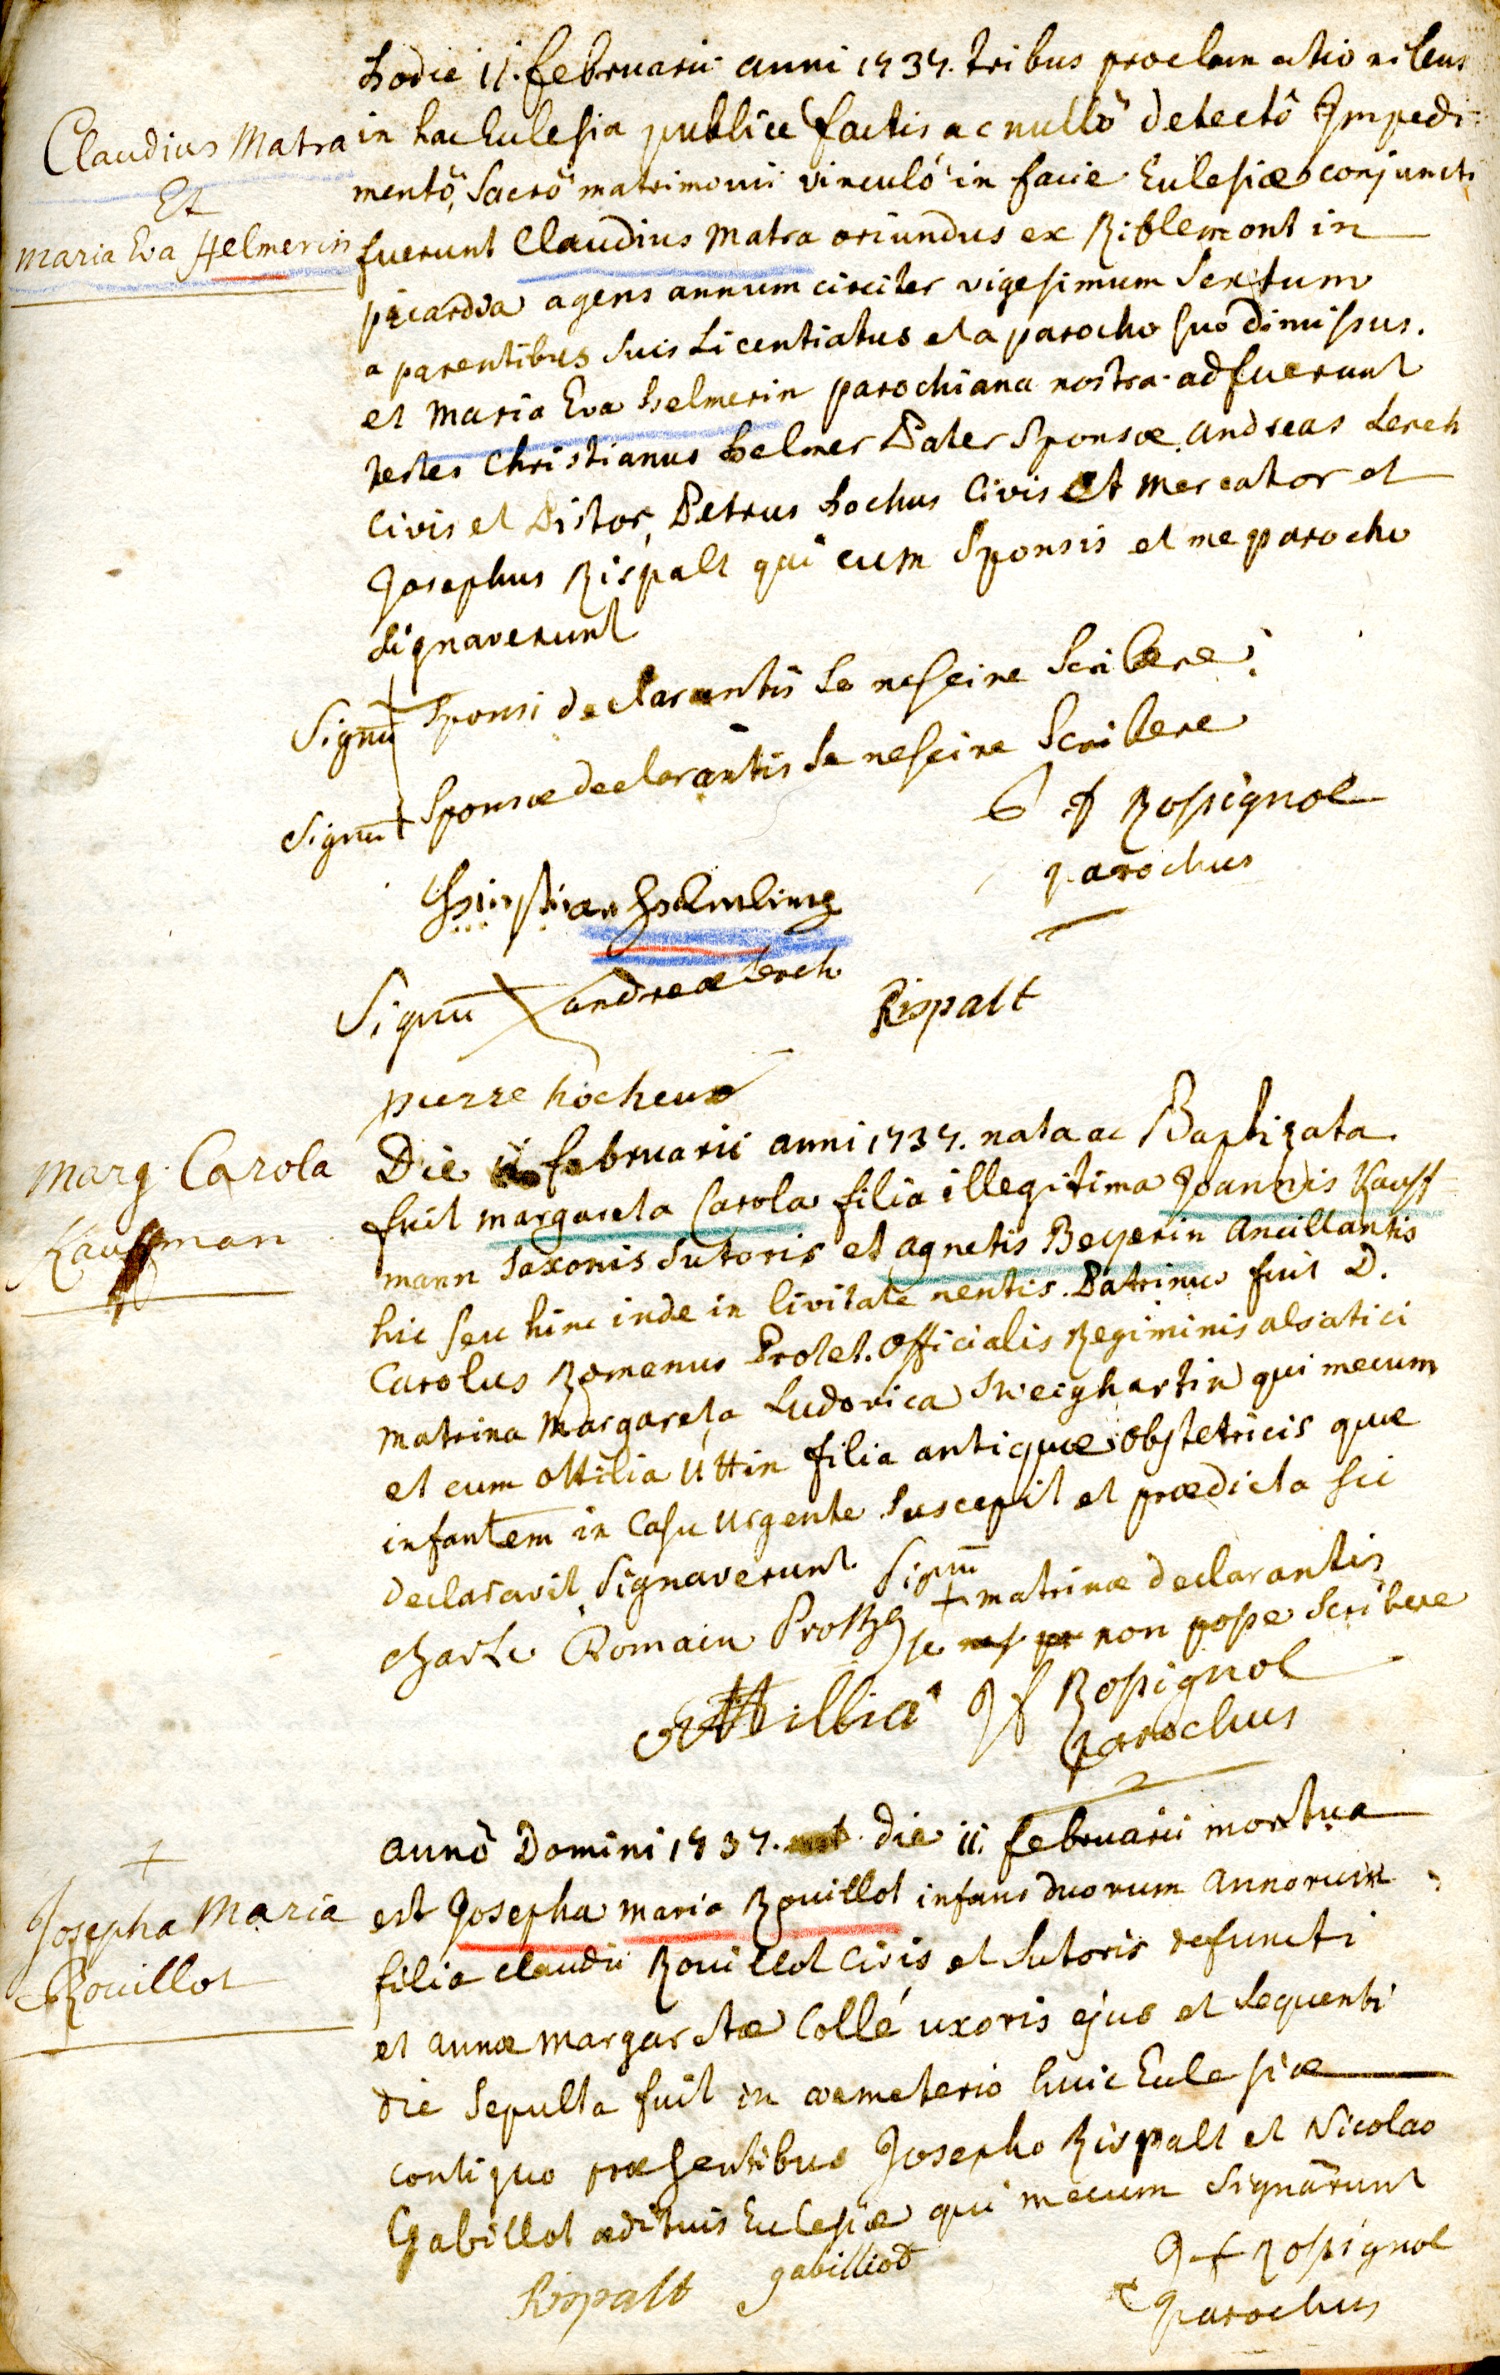 Claudius Matra
Et
Maria Eva Helmerin
hodie 11. februarii anni 1737. tribus proclamationibus
in hac Eulesia publice factis ac nullô detectô Impedi-
mentô, Sacrô matrimonii vinculô in facie Eulesiæ conjuncti
fuerunt Claudius Matra oriundus ex Riblemont in
picardia agens annum circiter vigesimum Sextum
a parentibus suis Licentiatus et a parocho suo dimissus.
et Maria Eva helmerin parochiana nostra. adfuerunt
testes Christianus helmer Pater Sponsæ Andreas Lerch
Civis et Pistor, Petrus hochus Civis Et Mercator et
Josephus Rispalt qui cum Sponsis et me parocho
Signaverunt
Signū + Sponsi declarantis Se nescire Scribere
Signū + Sponsæ declarantis Se nescire Scribere
J f Rossignol
parochus
Christian Helmling
Signū + andreæ Lerch
Rispalt
pierre hocheux
Marg. Carola
Kauffman
Die 11 februarii anni 1737. nata ac Baptizata
fuit margareta Carola filia illegitima Joannis Kauff
mann Saxonis Sutoris et agnetis Beyerin Ancillantis
hic seu hinc inde in Civitate nentis. Patrinus fuit D.
Carolus Romenus Protet. Officialis Regiminis alsatici
matrina Margareta Ludovica Sweighartin qui mecum
et cum Ottilia Uttin filia antiquæ Obstetricis quæ
infantem in Casu urgente Suscepit et prædicta sic
declaravit Signaverunt. Signū
+ matrinæ declarantis
Charle Romain
se non posse Scribere
Ottillia
J f Rossignol
parochus
+
Josepha Maria
Rouillot
annô Domini 1737. die 11. februarii mortua
est Josepha maria Rouillot infans duorum Annorum
filia claudii Rouillot Civis et Sutoris defuncti
et annæ Margaretæ Collé uxoris ejus et Sequenti
die Sepulta fuit in cœmeterio huic Eulesiæ
contiguo præsentibus Josepho Rispalt et Nicolao
Gabillot ædituis Eulesiæ qui mecum Signârunt
Rispalt
gabilliod
J f Rossignol
parochus